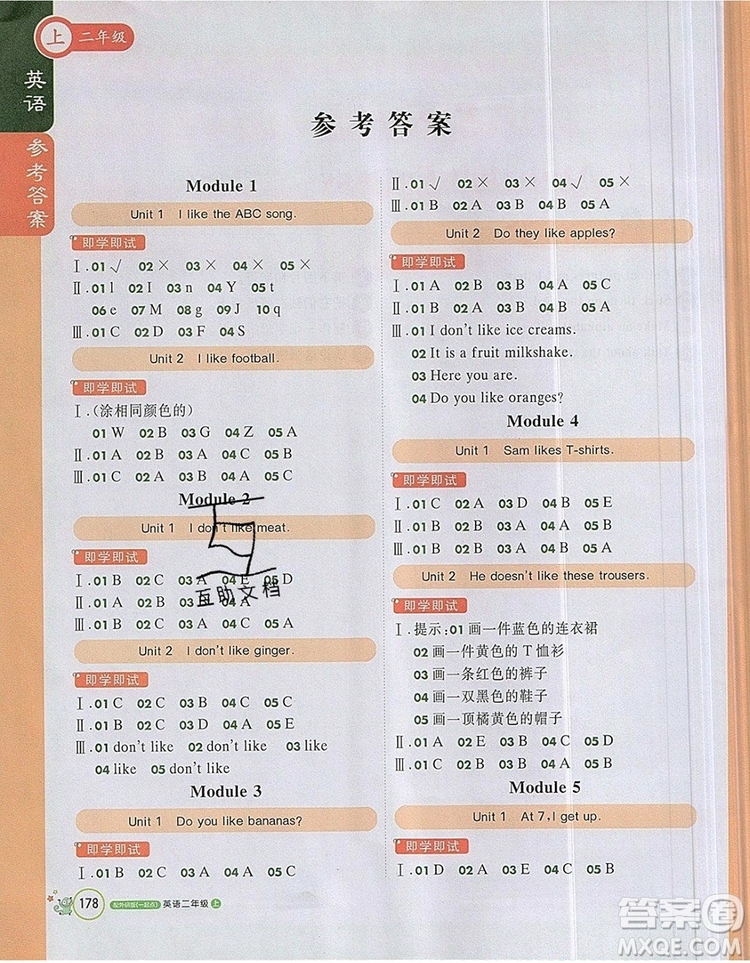 上 二年级
英语
参考答案
参考答案
Module 1
Unit 1 I like the ABC song.
即学即试
Ⅰ.01 √ 02 × 03 × 04 × 05 ×
Ⅱ.01 l 02 y 03 n 04 Y 05 t
06 e 07 M 08 g 09 J 10 q
Ⅲ.01 C 02 D 03 F 04 S
Unit 2 I like football.
即学即试
Ⅰ.(涂相同颜色的)
01 W 02 B 03 G 04 Z 05 A
Ⅱ.01 A 02 B 03 A 04 A 05 B
Ⅲ.01 C 02 A 03 B 04 A
Module 2
Unit 1 I don't like meat.
即学即试
Ⅰ.01 B 02 C 03 A 04 E 05 D
Ⅱ.01 A 02 B 03 A 04 B
Ⅲ.01 B 02 B 03 A 04 B 05 A
Unit 2 I don't like ginger.
即学即试
Ⅰ.01 C 02 C 03 B 04 C 05 A
Ⅱ.01 B 02 C 03 D 04 A 05 E
Ⅲ.01 don't like 02 don't like 03 like
04 like 05 don't like
Module 3
Unit 1 Do you like bananas?
即学即试
Ⅰ.01 B 02 C 03 A 04 A 05 C
Ⅱ.01 √ 02 × 03 × 04 √ 05 ×
Ⅲ.01 B 02 A 03 A 04 B 05 A
Unit 2 Do they like apples?
即学即试
Ⅰ.01 A 02 C 03 A 04 B 05 C
Ⅱ.01 A 02 B 03 B 04 B 05 A
Ⅲ.01 I don't like ice creams.
02 It is a fruit milkshake.
03 Here you are.
04 Do you like oranges?
Module 4
Unit 1 Sam likes T-shirts.
即学即试
Ⅰ.01 C 02 A 03 D 04 B 05 E
Ⅱ.01 B 02 B 03 A 04 B 05 A
Ⅲ.01 B 02 A 03 B 04 B 05 A
Unit 2 He doesn't like these trousers.
即学即试
Ⅰ.提示:01 画一件蓝色的连衣裙
02 画一件黄色的 T 恤衫
03 画一条红色的裤子
04 画一双黑色的鞋子
05 画一顶橘黄色的帽子
Ⅱ.01 A 02 E 03 B 04 C 05 D
Ⅲ.01 C 02 B 03 A 04 B 05 A
Module 5
Unit 1 At 7, I get up.
即学即试
Ⅰ.01 C 02 A 03 B 04 A 05 B
178 配外研版(一起点) 英语二年级 上
互助文档
答案圈
MXQE.COM